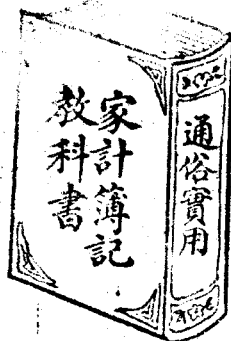 家計簿記
教科書
通俗實用